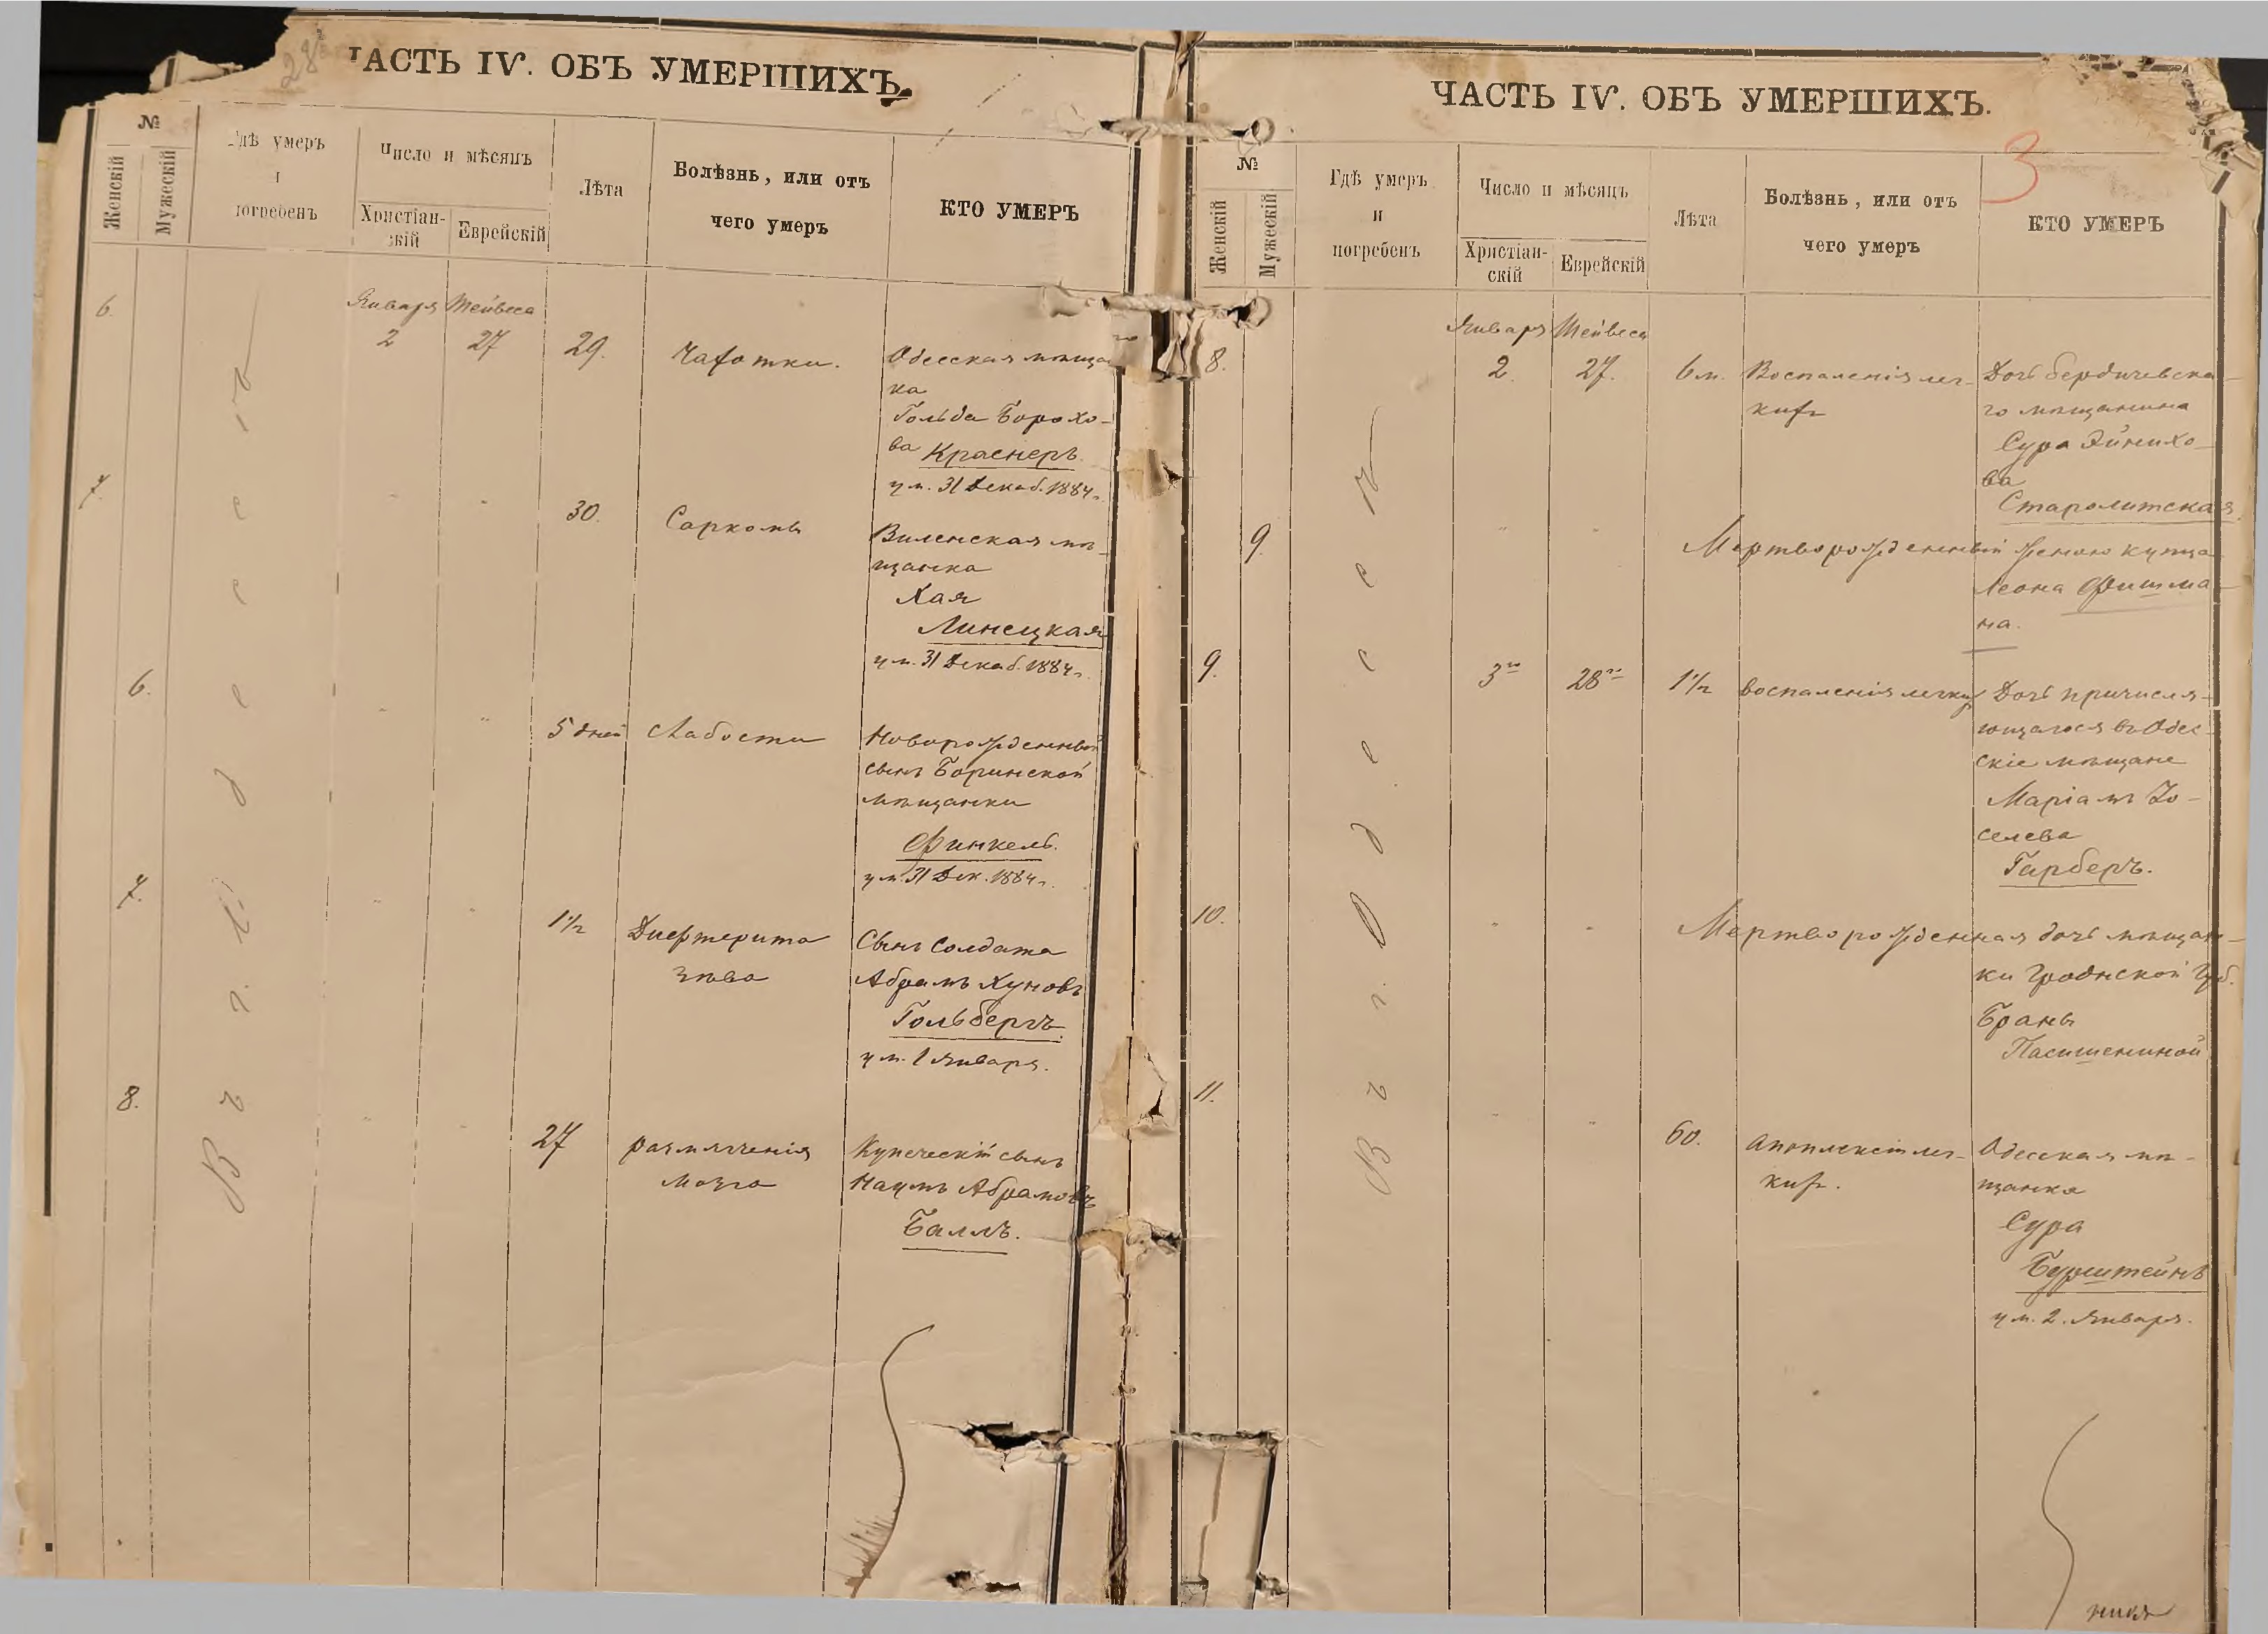 28
ЧАСТЬ IV. ОБЪ УМЕРШИХЪ.
№
Женскій
Мужескій
Гдѣ умеръ
и
погребенъ
Число и мѣсяцъ
Христіан-
скій
Еврейскій
Лѣта
Болѣзнь, или отъ
чего умеръ
КТО УМЕРЪ
Въ г. Одессѣ
6.
Января Тейвеса
2 27 29. Чахотки. Одесская мѣщан
ка
Гольда Борохо-
ва Краснеръ
ум. 31 Декаб. 1884 г.
7.
" " 30. Саркомы Виленская мѣ-
щанка
Хая
Линецкая
ум. 31 Декаб. 1884 г.
6.
" " 5 дней Слабости Новорожденный
сынъ
мѣщанки
Финкель.
ум. 31 Дек. 1884 г.
7.
" " 1 1/2 Дифтерита Сынъ Солдата
зѣва Абрамъ Хуновъ
Гольбергъ.
ум. 1 Января.
8.
" " 27 размягченія Купеческій сынъ
мозга Наумъ Абрамовъ
Баллъ.
3
ЧАСТЬ IV. ОБЪ УМЕРШИХЪ.
№
Женскій
Мужескій
Гдѣ умеръ
и
погребенъ
Число и мѣсяцъ
Христіан-
скій
Еврейскій
Лѣта
Болѣзнь, или отъ
чего умеръ
КТО УМЕРЪ
Въ г. Одессѣ
Января Тейвеса
8. 2. 27. 6 м. Воспаленія лег- Дочь бердичевска-
кихъ го мѣщанина
Сура Эйнихо-
ва
Старолитская
9. " " Мертворожденный женою купца
Леона Фишма-
на.
9. 3го 28го 1 1/2 воспаленія легких Дочь причисля-
ющагося въ Одес-
скіе мѣщане
Маріамъ Іо-
селева
Гарберъ.
10. " " Мертворожденная дочь мѣщан-
ки Гроднской Губ.
Браны
11.
" " 60. Апоплексіи лег- Одесская мѣ-
кихъ. щанка
Сура
Бурштейнъ
ум. 2. Января.